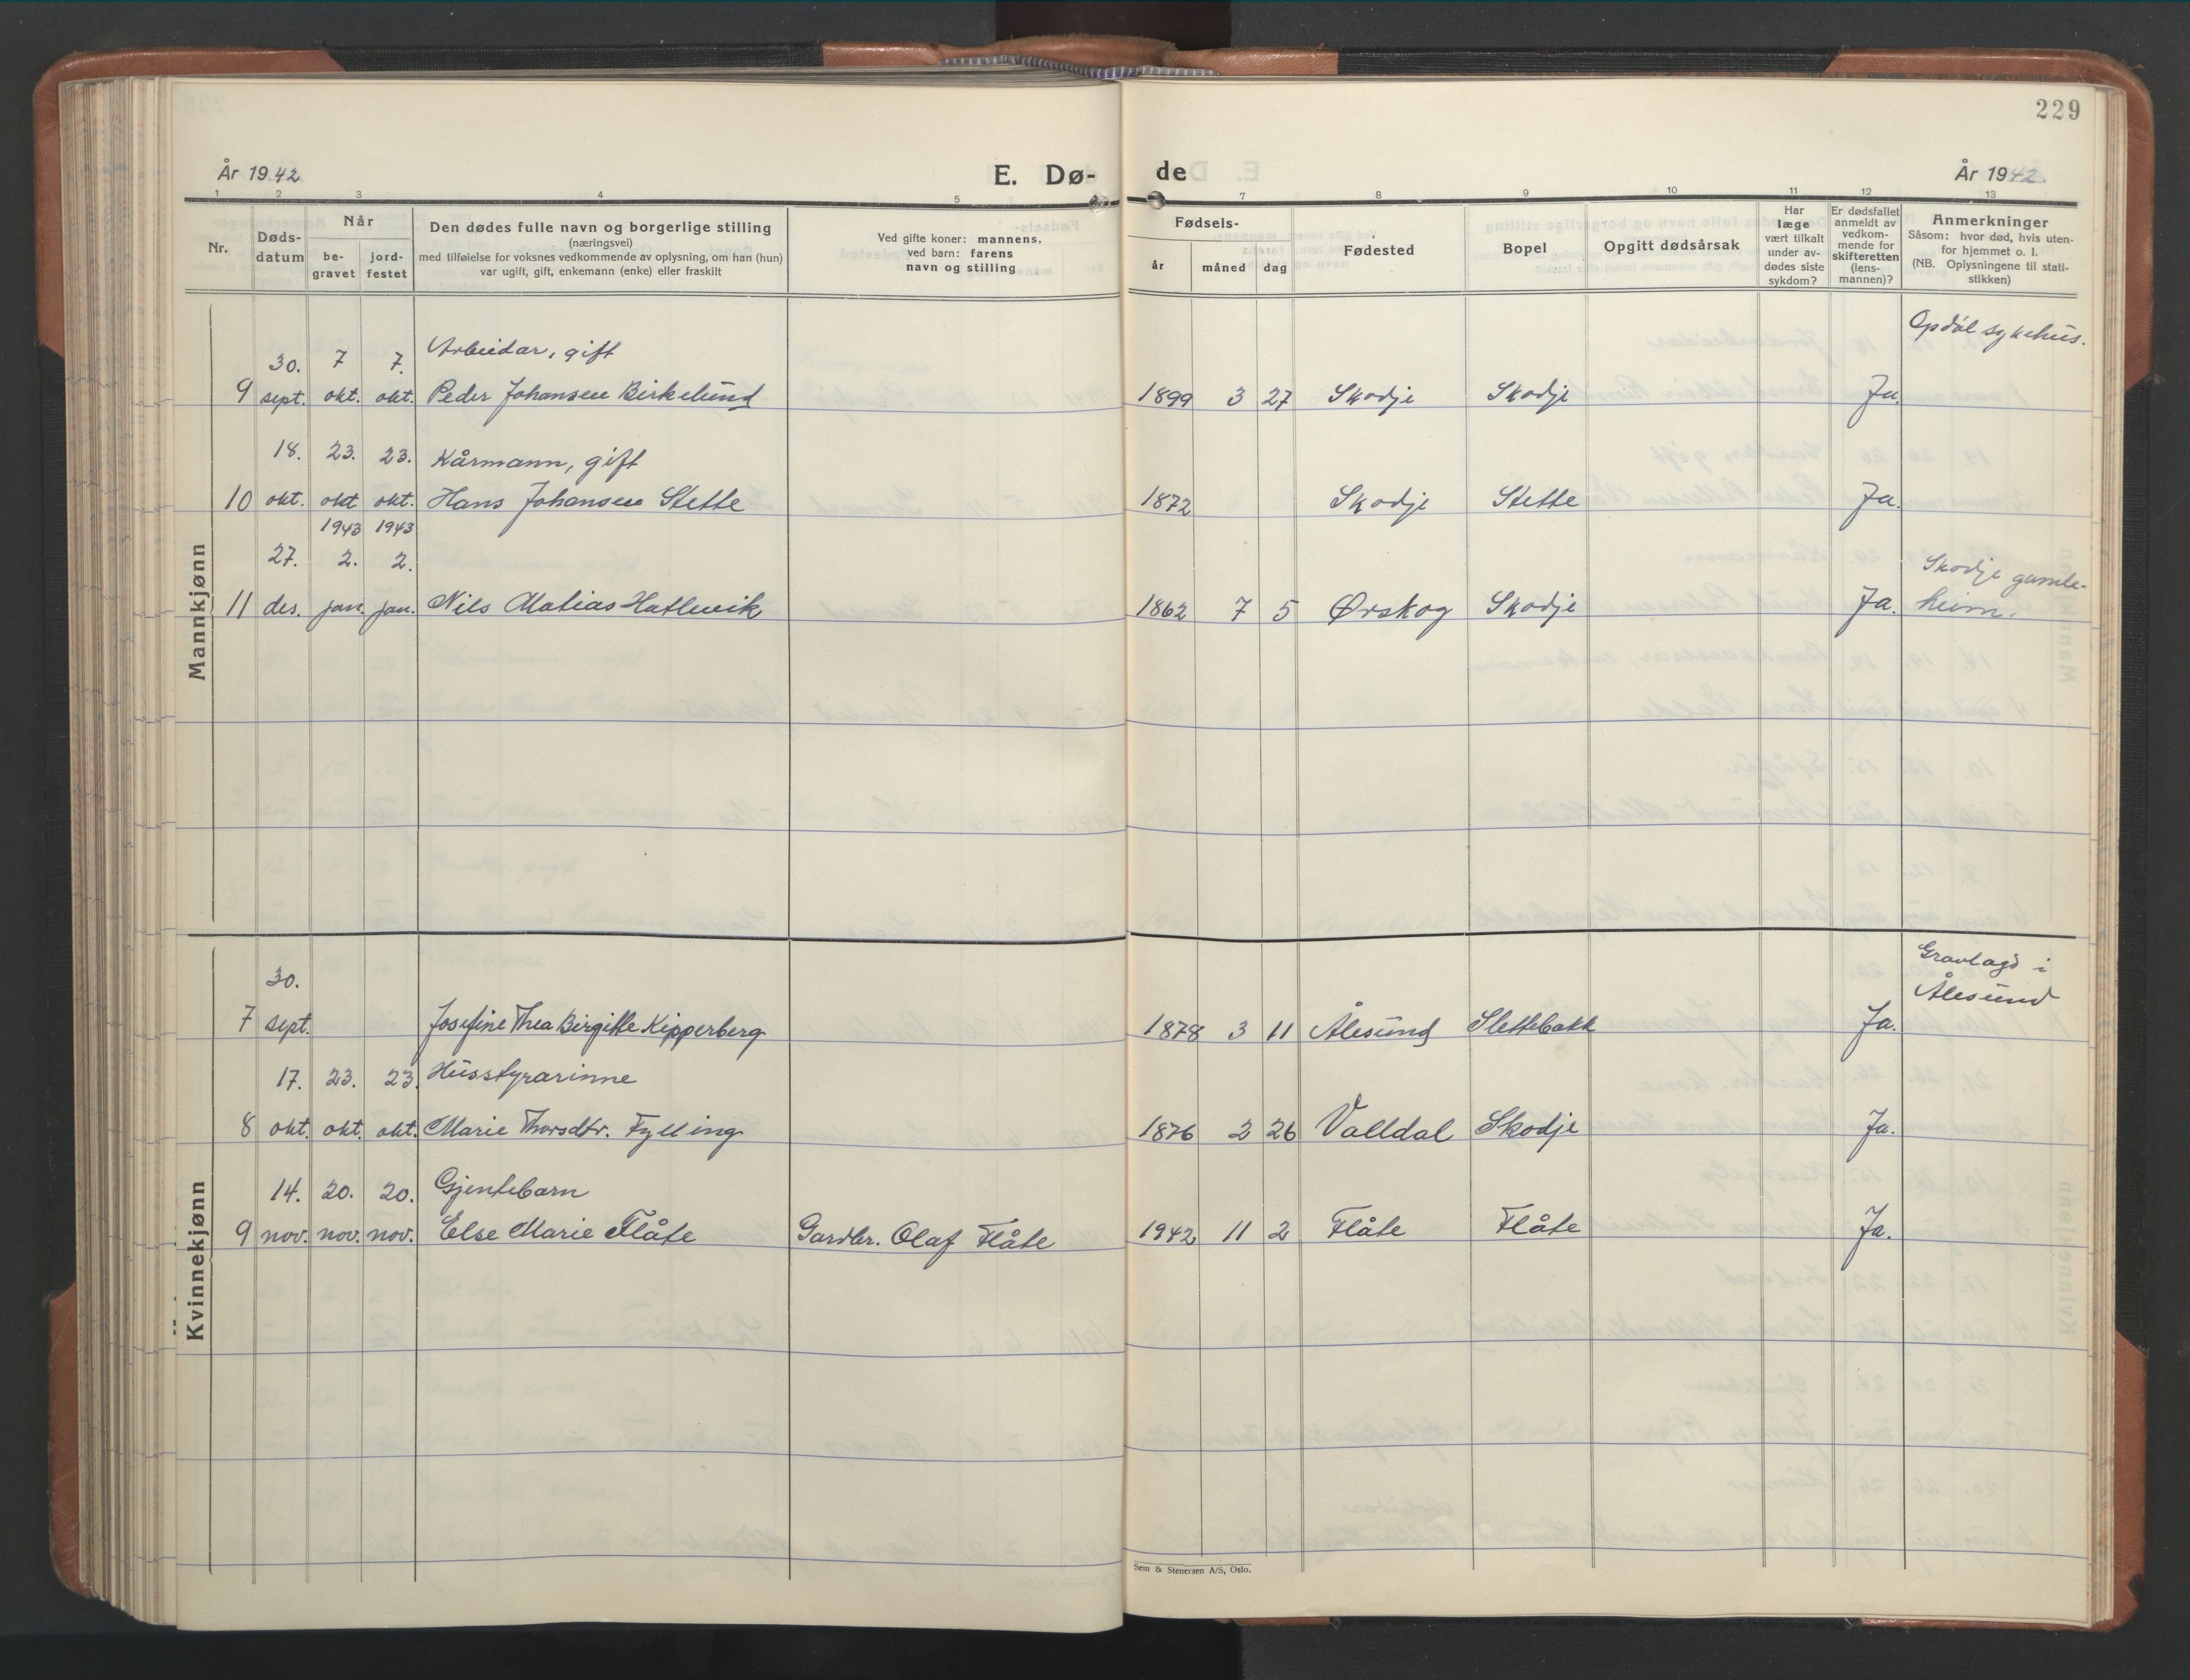 229
År 1942 E. Dø- de År 1942.
1 2 3 4 5 7 8 9 10 11 12 13
Nr. Døds-datum Når be-gravet jord-festet Den dødes fulle navn og borgerlige stilling (næringsvei) med tilføielse for voksnes vedkommende av oplysning, om han (hun) var ugift, gift, enkemann (enke) eller fraskilt Ved gifte koner: mannens, ved barn: farens navn og stilling Fødsels- år måned dag Fødested Bopel Opgitt dødsårsak Har læge vært tilkalt under av-dødes siste sykdom? Er dødsfallet anmeldt av vedkom-mende for skifteretten (lens-mannen)? Anmerkninger Såsom: hvor død, hvis uten-for hjemmet o. l. (NB. Oplysningene til stati-stikken)
Mannkjønn
30. 7 7. Arbeidar, gift Opdøl sykehus.
9 sept. okt. okt. Peder Johansen Birkelund 1899 3 27 Skodje Skodje Ja.
18. 23. 23. Kårmann, gift
10 okt. okt okt. Hans Johansen Stette 1872 Skodje Stette Ja.
1943 1943
27. 2. 2. Skodje gamle-
11 des. jan. jan. Nils Matias Hatlevik 1862 7 5 Ørskog Skodje Ja. heim.
Kvinnekjønn
30. Gravlagd i
Ålesund
7 sept. Josefine Thea Birgitte Kipperberg 1878 3 11 Ålesund Slettebakk Ja.
17. 23. 23. Husstyrarinne
8 okt. okt. okt. Marie Thorsdtr. Fylling 1876 2 26 Valldal Skodje Ja.
14. 20. 20. Gjentebarn
9 nov. nov. nov. Else Marie Flåte Gardbr. Olaf Flåte 1942 11 2 Flåte Flåte Ja.
Sem & Stenersen A/S, Oslo.